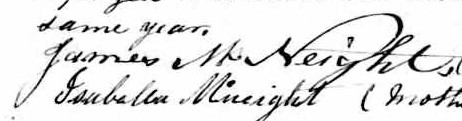 same year.
James McNeight
Isabella Mcneight (Moth